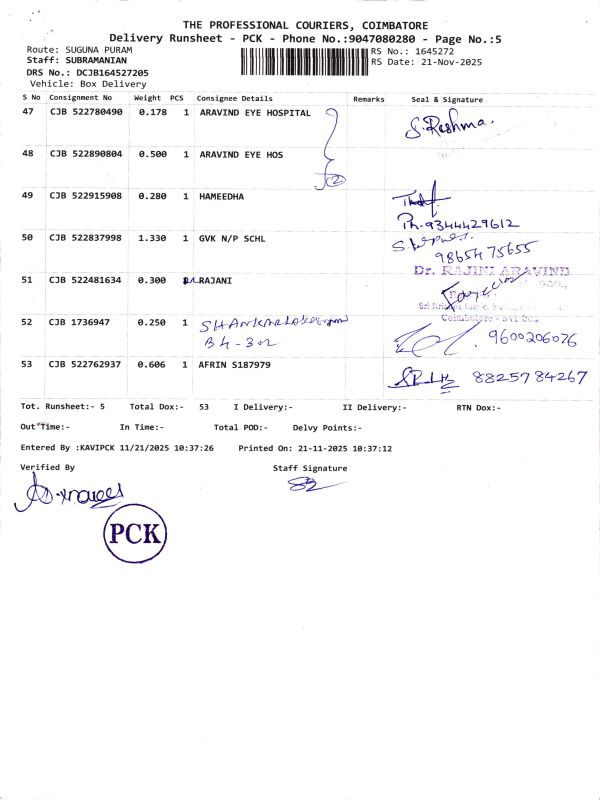 THE PROFESSIONAL COURIERS, COIMBATORE
Delivery Runsheet - PCK - Phone No.:9047080280 - Page No.:5
Route: SUGUNA PURAM RS No.: 1645272
Staff: SUBRAMANIAN RS Date: 21-Nov-2025
DRS No.: DCJB164527205
Vehicle: Box Delivery
S No Consignment No Weight PCS Consignee Details Remarks Seal & Signature
47 CJB 522780490 0.178 1 ARAVIND EYE HOSPITAL S. Reshma.
48 CJB 522890804 0.500 1 ARAVIND EYE HOS
2
49 CJB 522915908 0.280 1 HAMEEDHA
Ph-9344429612
50 CJB 522837998 1.330 1 GVK N/P SCHL
9865475655
Dr. RAJINI ARAVIND
51 CJB 522481634 0.300 RAJANI
Coimbatore - 641
52 CJB 1736947 0.250 1
B4-302
9600206076
53 CJB 522762937 0.606 1 AFRIN S187979 8825784267
Tot. Runsheet:- 5 Total Dox:- 53 I Delivery:- II Delivery:- RTN Dox:-
Out Time:- In Time:- Total POD:- Delvy Points:-
Entered By :KAVIPCK 11/21/2025 10:37:26 Printed On: 21-11-2025 10:37:12
Verified By Staff Signature
PCK